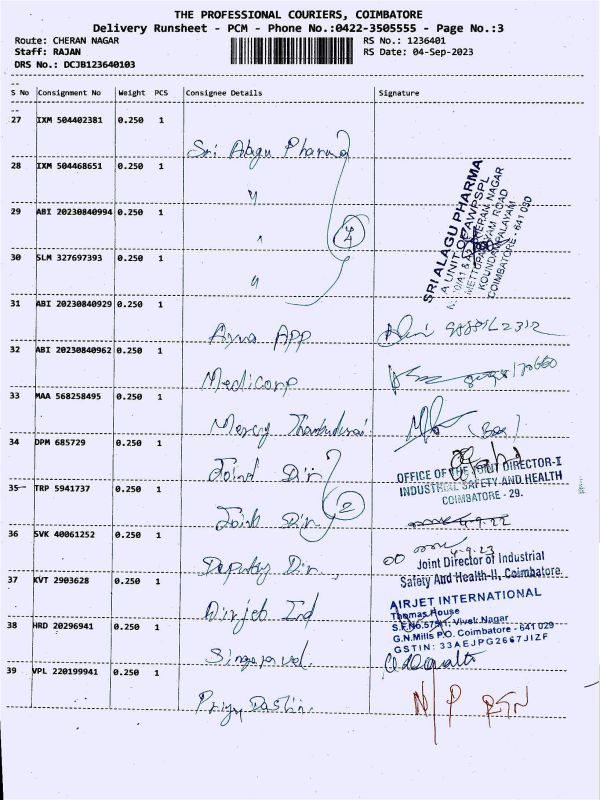 THE PROFESSIONAL COURIERS, COIMBATORE
Delivery Runsheet - PCM - Phone No.:0422-3505555 - Page No.:3
Route: CHERAN NAGAR
RS No.: 1236401
Staff: RAJAN
RS Date: 04-Sep-2023
DRS No.: DCJB123640103
S No Consignment No Weight PCS Consignee Details Signature
27 IXM 504402381 0.250 1
Sri Alagu Pharma
28 IXM 504468651 0.250 1
"
29 ABI 20230840994 0.250 1
"
4
30 SLM 327697393 0.250 1
"
SRI ALAGU PHARMA
A UNIT OF AWPSPL
CHERAN NAGAR
METTUPALAYAM ROAD
KOUNDAMPALAYAM
COIMBATORE - 641 030
31 ABI 20230840929 0.250 1
App
32 ABI 20230840962 0.250 1
Medicorp
33 MAA 568258495 0.250 1
Mercy
34 DPM 685729 0.250 1
Joind Dir
OFFICE OF THE JOINT DIRECTOR-I
INDUSTRIAL SAFETY AND HEALTH
COIMBATORE - 29.
35 TRP 5941737 0.250 1
Joint Dir
2
36 SVK 40061252 0.250 1
Deputy Dir.
4-9-23
Joint Director of Industrial
Safety And Health-II, Coimbatore.
37 KVT 2903628 0.250 1
Airjet Ind
AIRJET INTERNATIONAL
Thomas House
S.F.No.575/1, Vivek Nagar
G.N.Mills P.O. Coimbatore - 641 029
GSTIN: 33AEJPG2667J1ZF
38 HRD 20296941 0.250 1
39 VPL 220199941 0.250 1
N/P RTN